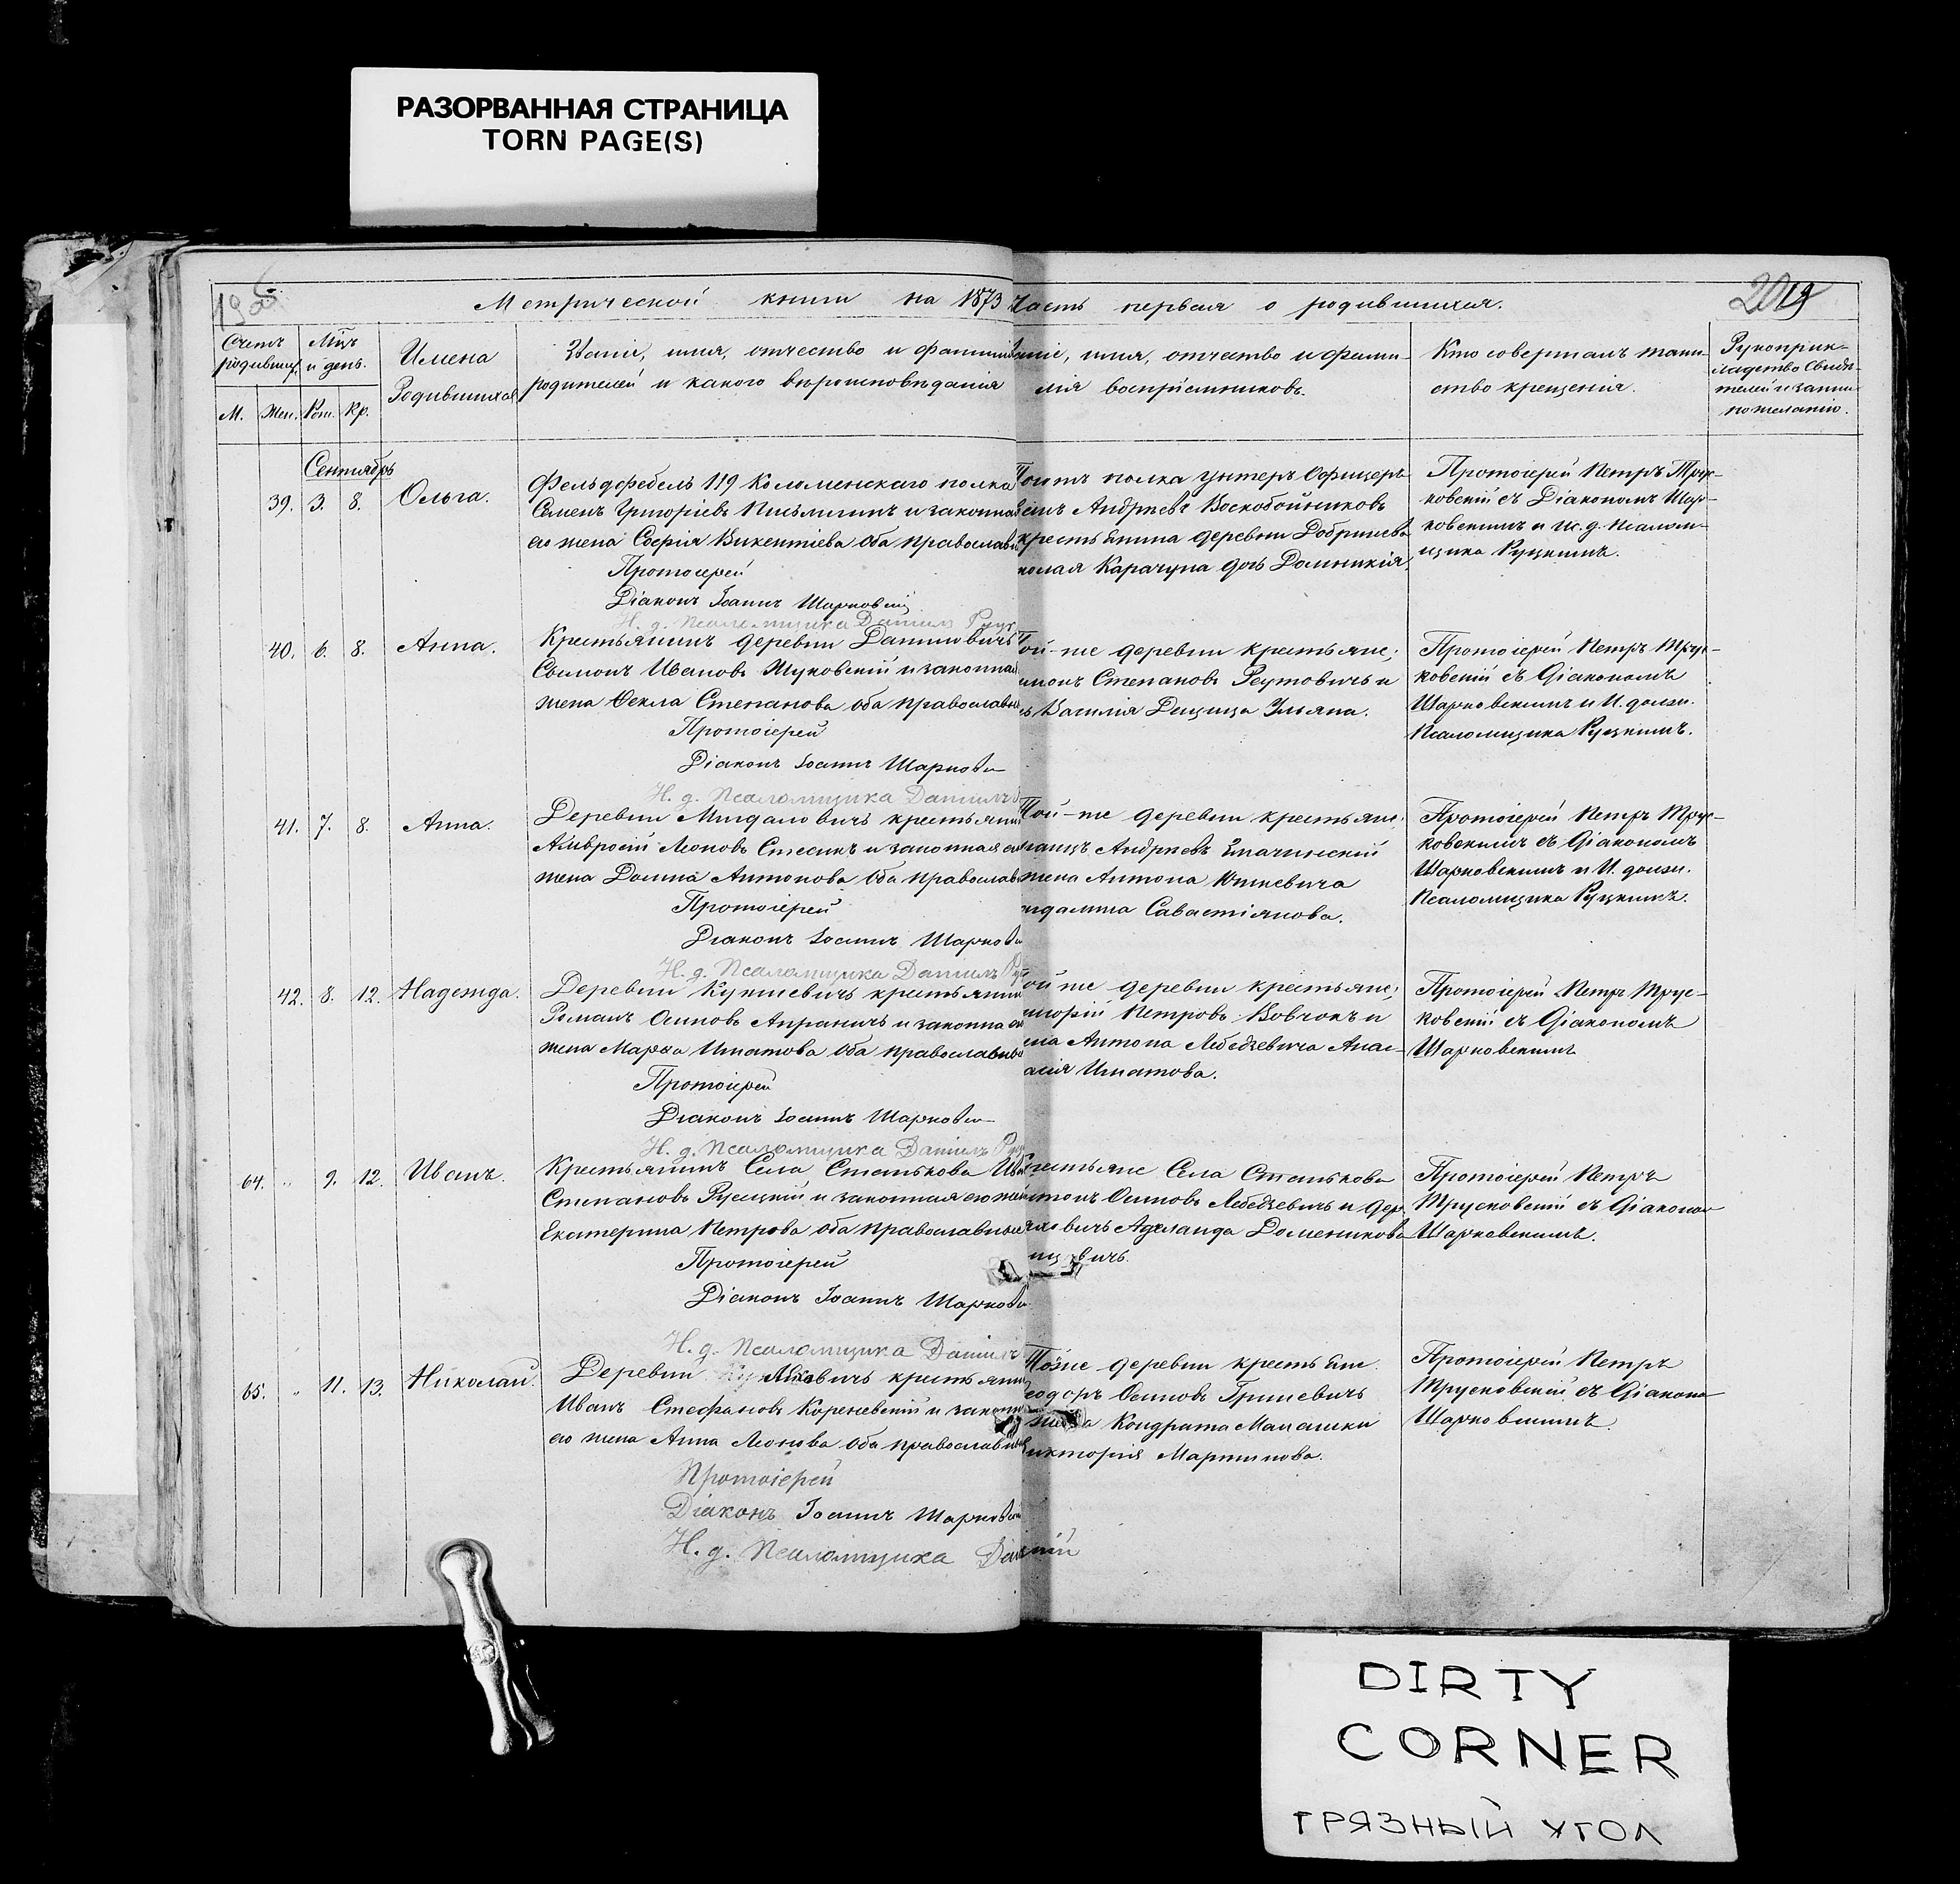 РАЗОРВАННАЯ СТРАНИЦА
TORN PAGE(S)
Метрической книги на 1873
Часть первая о родившихся.
2019
Счетъ родивших.
Мцъ и день.
М. Жен. Рож. Кр.
Имена Родившихся
Званіе, имя, отчество и фамилія
родителей и какого вѣроисповѣданія
аніе, имя, отчество и фами-
лія воспріемниковъ.
Кто совершалъ таин-
ство крещенія.
Рукоприк-
ладство Свидѣ-
телей и запи
по желанію.
Сентябрь
39. 3. 8. Ольга.
Фельдфебель 119 Коломенскаго полка
Семенъ Григоріевъ и законная
его жена Софія Викентіева оба православ
Протоіерей
Діаконъ Іоаннъ Шарковскій
И. д. Псаломщика Даніилъ
Тогожъ полка унтеръ Офицеръ
Андреевъ Воскобойниковъ
крестьянина деревни
колая Карачуна дочь Домникія
Протоіерей Петръ Трус-
ковскій съ Діакономъ Шар-
ковскимъ и и. д. Псалом-
щика Руцкимъ.
40. 6. 8. Анна.
Крестьянинъ деревни
Ивановъ Жуковскій и законная
жена Ѳекла Степанова оба православн
Протоіерей
Діаконъ Іоаннъ Шарковс
И. д. Псаломщика Даніилъ
ой-же деревни крестьяне;
Степановъ Реутовичъ и
Василія Ульяна.
Протоіерей Петръ Трус-
ковскій съ Діакономъ
Шарковскимъ и И. долж.
Псаломщика Руцкимъ.
41. 7. 8. Анна.
Деревни крестьянин
Амвросій Леоновъ и законная ег
жена Домна Антонова оба православ
Протоіерей
Діаконъ Іоаннъ Шарковс
И. д. Псаломщика Даніилъ
Той-же деревни крестьяне,
Андреевъ
жена Антона Юшкевича
Савастіянова.
Протоіерей Петръ Трус-
ковскимъ съ Діакономъ
Шарковскимъ и И. долж.
Псаломщика Руцкимъ.
42. 8. 12. Надежда.
Деревни крестьянин
Романъ Осиповъ и законная
жена Марѳа Игнатова оба православны
Протоіерей
Діаконъ Іоаннъ Шарковс
И. д. Псаломщика Даніилъ
ой же деревни крестьяне;
Петровъ Вовчокъ и
Антона Лебедзевича Анас-
асія Игнатова.
Протоіерей Петръ Трус-
ковскій съ Діакономъ
Шарковскимъ
64. " 9. 12. Иванъ.
Крестьянинъ Села Станькова Ив
Степановъ Русецкій и законная его жен
Екатерина Петрова оба православные
Протоіерей
Діаконъ Іоаннъ Шарковс
И. д. Псаломщика Даніилъ
рестьяне Села Станькова
Осиповъ Лебедзевичъ и дер.
Аделаида Доменикова
Протоіерей Петръ
Трусковскій съ Діаконом
Шарковскимъ.
65. " 11. 13. Николай.
Деревни крестьянин
Иванъ Стефановъ Кореневскій и законн
его жена Анна Леонова оба православные
Протоіерей
Діаконъ Іоаннъ Шарковск
И. д. Псаломщика Дан
Тойже деревни крестьяне.
еодоръ Осиповъ Гриневичъ
Кондрата
икторія Мартинова.
Протоіерей Петръ
Трусковскій съ Діакono
Шарковскимъ.
DIRTY
CORNER
ГРЯЗНЫЙ УГОЛ